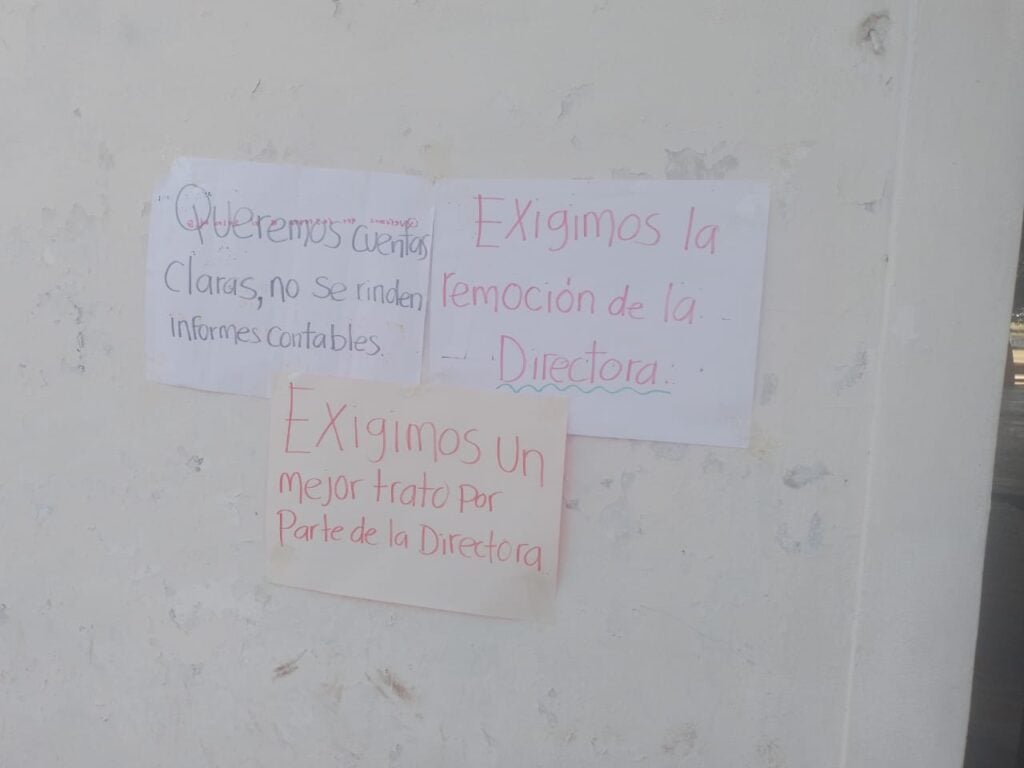 Queremos cuentas
Claras, no se rinden
informes contables.
Exigimos la
remoción de la
Directora.
Exigimos un
mejor trato por
Parte de la Directora